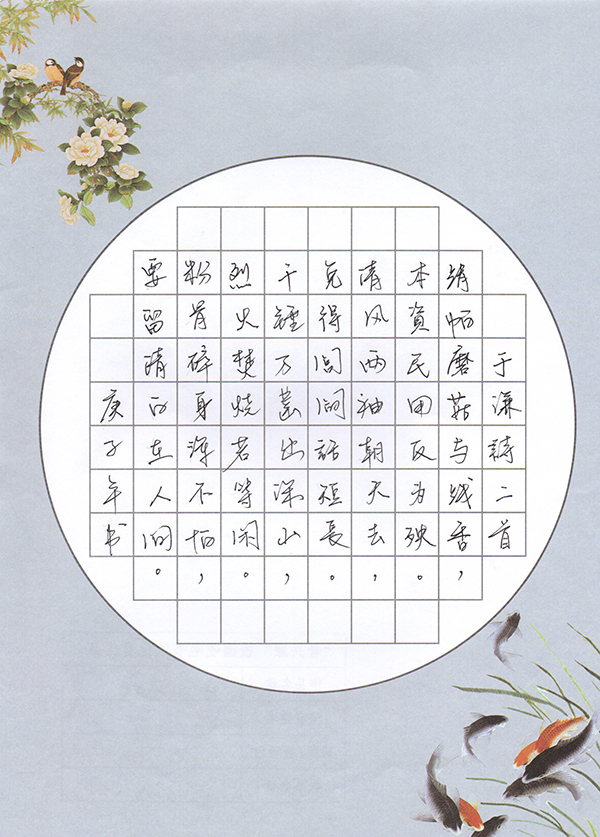 于谦詩二首
绢帕磨菇与线香，
本資民用反为殃。
清风两袖朝天去，
免得闾阎話短長。
千锤万凿出深山，
烈火焚烧若等闲。
粉骨碎身浑不怕，
要留清白在人间。
庚子年书